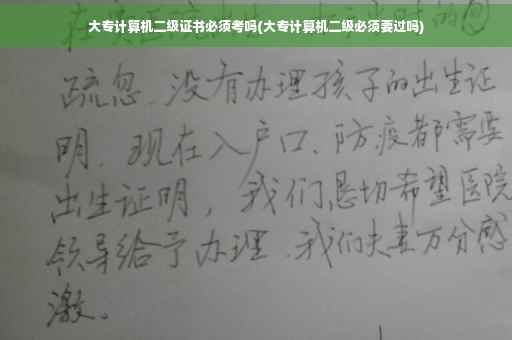 大专计算机二级证书必须考吗(大专计算机二级必须要过吗)
疏忽、没有办理孩子的出生证
明。现在入户口、防疫都需要
出生证明，我们恳切希望医院
领导给予办理，我们夫妻万分感
激。